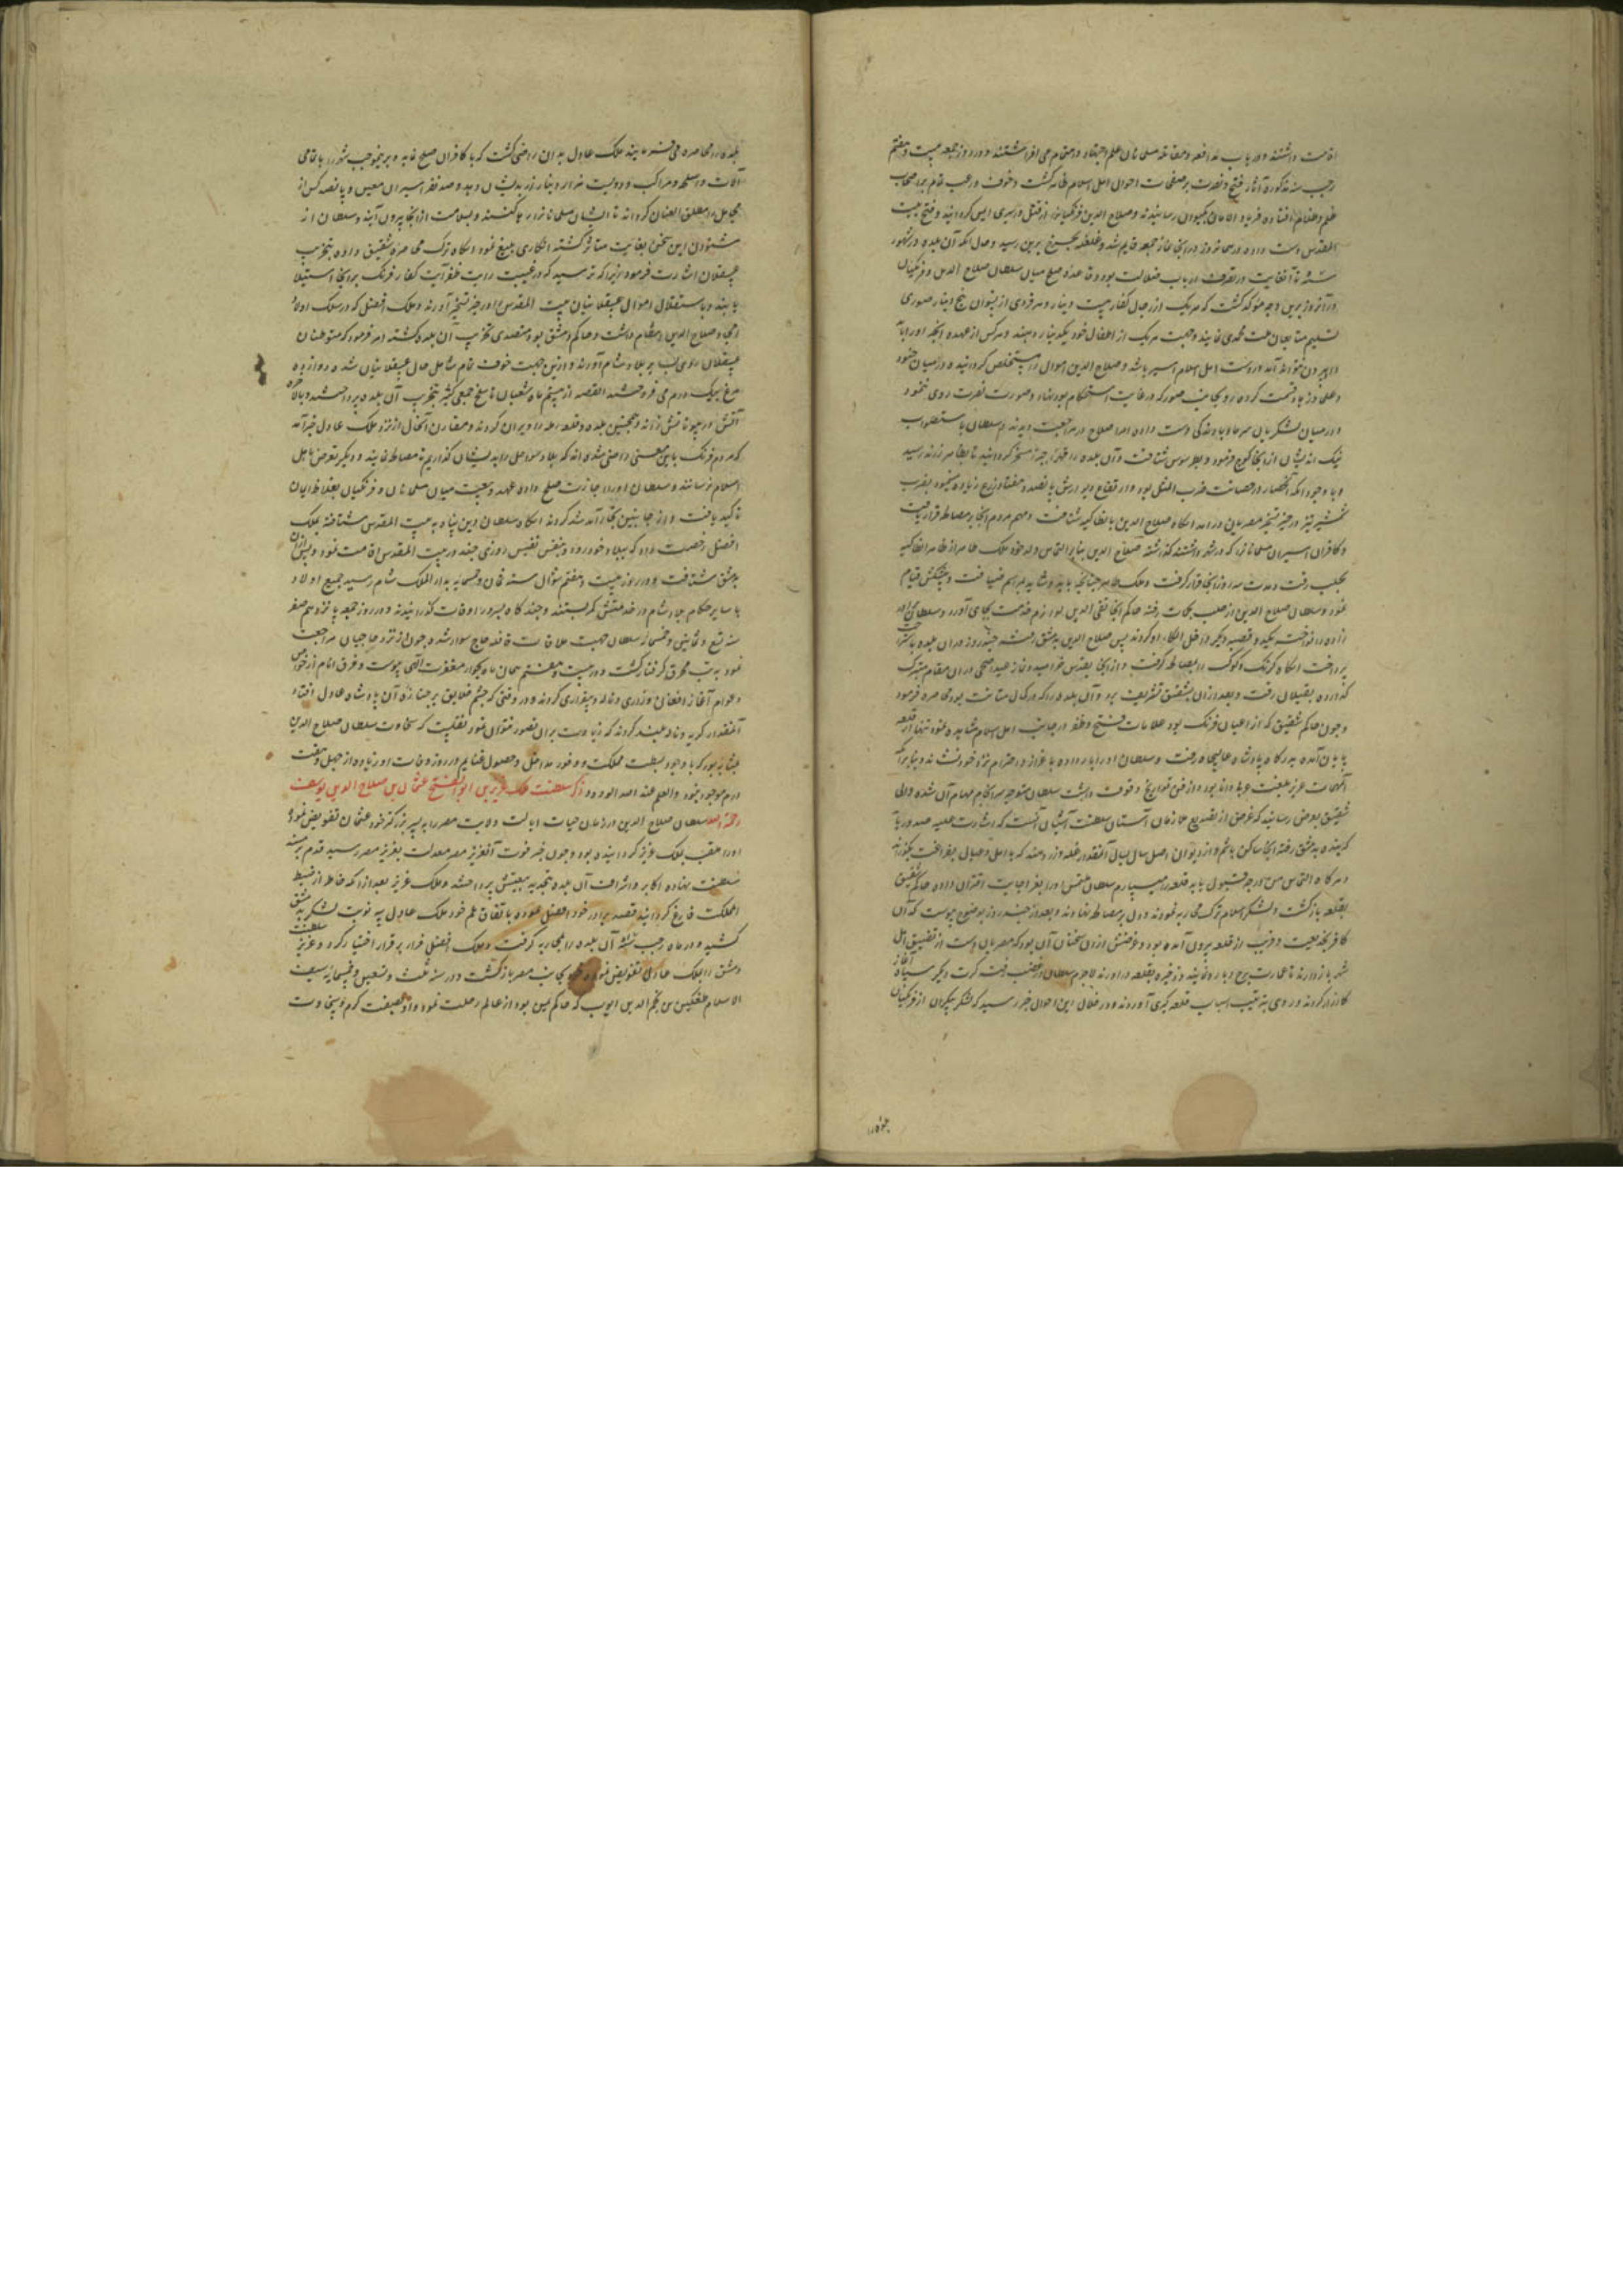 اقامت داشتند و در باب مدافعه و مقاتله مسلمانان علم اجتهاد و اهتمام می افراشتند و در روز جمعه بیست و هفتم
رجب سنه مذکوره آثار فتح و نصرت بر صفحات احوال اهل اسلام ظاهر گشت و خوف و رعب تمام بر اصحاب
ظلم و ظلام افتاده فریاد الامان بکیوان رسانیدند و صلاح الدین فرنگیانرا از قتل و اسیری ایمن گردانید و فتح بیت
المقدس دست داده در همانروز در آنجا نماز جمعه قایم شد و غلغله بچرخ برین رسید و حال آنکه آن بلده در شهور
در آنروز برین وجه مؤکد گشت که هر یک از رجال کفار بیست دینار و هر فردی از نسوان پنج دینار صوری
تسلیم متابعان ملت محمدی نمایند و جهت هر یک از اطفال خود یکدینار دهند و هر کس از عهده اینکه او را
بیرون نتواند آمد در دست اهل اسلام اسیر باشد و صلاح الدین اموال را مستخلص گردانیده در میان جنود
و علما و زهاد قسمت کرد و روی بجانب صور که در غایت استحکام بود نهاد و صورت نصرت روی ننمود
و در میان لشکریان سرما و باد و نمی دست داده امرا صلاح در مراجعت دیدند و سلطان باستصواب
نیک اندیشان از آنجا کوچ فرمود و بطرسوس شتافت و آن بلده را قهرا جبرا مسخر گردانید تا بظاهر رسید
و با وجود آنکه آن حصار در حصانت ضرب المثل بود و ارتفاع دیوارش پانصد و هفتاد زرع زیاده مینمود بضرب
شمشیر تیز در حیز تسخیر مصریان درآمد آنگاه صلاح الدین بانطاکیه شتافت و مهم مردم آنجا بر مصالحه قرار یافت
و کافران اسیران مسلمانانرا که در شهر داشتند گذاشته صلاح الدین بنابر التماس ولد خود ملک ظاهر از ظاهر انطاکیه
بحلب رفت و مدت سه روز آنجا قرار گرفت و ملک ظاهر چنانچه باید و شاید بمراسم ضیافت و پیشکش قیام
نمود و سلطان صلاح الدین از حلب بحمات رفته حاکم آنجا تقی الدین لوازم خدمت بجای آورد و سلطان
انداخت جبله و قصبه دیگر داخل الکاء او گردند پس صلاح الدین بدمشق رفته چند روز در آن بلده باستراحت
پرداخت آنگاه کرک و کوکب را بمصالحه گرفت و از آنجا بقدس خرامید و نماز عید اضحی در آن مقام متبرک
گذارده بعسقلان رفت و بعد از آن بشقیق تشریف برد و آن بلده را که در کمال متانت بود محاصره فرمود
و چون حاکم شقیق که از اعیان فرنگ بود علامات فتح و ظفر در جانب اهل اسلام مشاهده نمود تنها از قلعه
پایان آمده بدرگاه پادشاه عالیجاه رفت و سلطان او را بار داده باعزاز و احترام نزد خود نشاند و بنابر آنکه
شقیق بعرض رسانید که غرض از تصدیع ملازمان آستان سلطنت آشیان آنست که اشارت علیه صدور یابد
که بنده بدمشق رفته آنجا ساکن باشم و از دیوان اعلی سال بسال آنمقدار غله و زر دهند که با اهل و عیال بفراغت بگذرانم
و هرگاه التماس من درجه قبول یابد قلعه را میسپارم سلطان ملتمس او را بعز اجابت اقتران داده حاکم شقیق
بقلعه بازگشت و لشکر اسلام ترک محاربه نمودند و دل بر مصالحه نهادند و بعد از چند روز بوضوح پیوست که آن
کافر بخدیعت و فریب از قلعه بیرون آمده بود و غرضش از آن سخنان آن بود که مصریان دست از تضییق اهل
شهر بازدارند تا عمارت برج و باره نمایند و ذخیره بقلعه درآورند لاجرم سلطان در غضب رفت کرت دیگر سپاه آغاز
کارزار کردند و روی بترتیب اسباب قلعه گیری آوردند و در خلال این احوال خبر رسید که لشکر بیکران از فرنگیان
بلده را
بلده را محاصره می نمایند ملک عادل بدان راضی گشت که با کافران صلح نماید و برینموجب شهر را با تمامی
آلات و اسلحه و مراکب و دویست هزار دینار زر بدیشان دهد و صد نفر اسیران معین و پانصد کس از
مجاهیل را مطلق العنان گرداند تا ایشان مسلمانانرا رها کنند و بسلامت از آنجا بیرون آیند و سلطان از
شنودن این سخن بغایت متاثر گشته انکاری بلیغ نمود آنگاه ترک محاصره شقیق داده بتخریب
عسقلان اشارت فرمود زیرا که ترسید که در غیبت رایت ظفر آیت کفار فرنگ بر آنجا استیلا
یابند و باستقلال اموال عسقلانیان بیت المقدس را در حیز تسخیر آورند و ملک افضل که در سلک اولاد
امجاد صلاح الدین انتظام داشت و حاکم دمشق بود متصدی تخریب آن بلده گشته امر فرمود که متوطنان
عسقلان روی ببلاد شام آورند و ازین جهت خوف تمام شامل حال عسقلانیان شده دوازده
مرغ بیک درم می فروختند القصه از بیستم ماه شعبان تا سلخ جمعی کثیر بتخریب آن بلده پرداختند
آتش در بیوتاتش زدند و همچنین بلده و قلعه رمله را ویران کردند و مقارن آنحال از نزد ملک عادل خبر آمد
که مردم فرنگ باین معنی راضی شده اند که بلاد سواحل را بدیشان گذاریم تا مصالحه نمایند و دیگر تعرض باهل
اسلام نرسانند و سلطان او را اجازت صلح داده عهد و بیعت میان مسلمانان و فرنگیان بغلاظ ایمان
تاکید یافت و از جانبین تجار آمد شد کردند آنگاه سلطان دین پناه به بیت المقدس شتافته ملک
افضل رخصت داد که ببلاد خود رود و بنفس نفیس روزی چند در بیت المقدس اقامت نمود و پس از آن
بدمشق شتافت و در روز بیست و هفتم شوال سنه ثمان و خمسمایه بدار الملک شام رسید جمیع اولاد
با سایر حکام بلاد شام در خدمتش کمر بستند و چند گاه بسرور اوقات گذرانیدند و در روز جمعه پانزدهم صفر
سنه تسع و ثمانین و خمسمایه سلطان جهت ملاقات قافله حاج سوار شده چون از نزد حاجیان مراجعت
نمود به تب محرق گرفتار گشت و در بیست و هفتم همان ماه بجوار مغفرت الهی پیوست و فرق انام از خواص
و عوام آغاز افغان و زاری و ناله و بیقراری کردند و در وقتی که چشم خلایق بر جنازه آن پادشاه عادل افتاد
آنمقدار گریه و ناله بلند کردند که زیادت بر آن تصور نتوان نمود نقلست که سخاوت سلطان صلاح الدین
بمثابه بود که با وجود بسطت مملکت و وفور مداخل و حصول غنایم در روز وفات او زیاده از چهل و هفت
درم موجود نبود والعلم عند الله الودود ذکر سلطنت ملک عزیز بن ابو الفتح عثمان بن صلاح الدین یوسف
رحمة الله سلطان صلاح الدین در زمان حیات ایالت ولایت مصر را به پسر بزرگتر خود عثمان تفویض نموده
او را ملقب بملک عزیز گردانیده بود و چون خبر فوت آنعزیز مصر معدلت بعزیز مصر رسید قدم بر مسند
سلطنت نهاده اکابر و اشراف آن بلده بتجدید بیعتش پرداختند و ملک عزیز بعد از آنکه خاطر از ضبط
المملکت فارغ گردانید قصد برادر خود افضل نموده باتفاق عم خود ملک عادل سه نوبت لشکر بدمشق
کشید و در ماه رجب آن بلده را بمحاربه گرفت و ملک افضل فرار بر قرار اختیار کرد و عزیز سلطنت
دمشق را بملک عادل تفویض نموده بجانب مصر بازگشت و در سنه ثلث و تسعین و خمسمایه سیف
الاسلام طغتکین بن نجم الدین ایوب که حاکم یمن بود از عالم رحلت نمود و او بصفت کرم و سخاوت